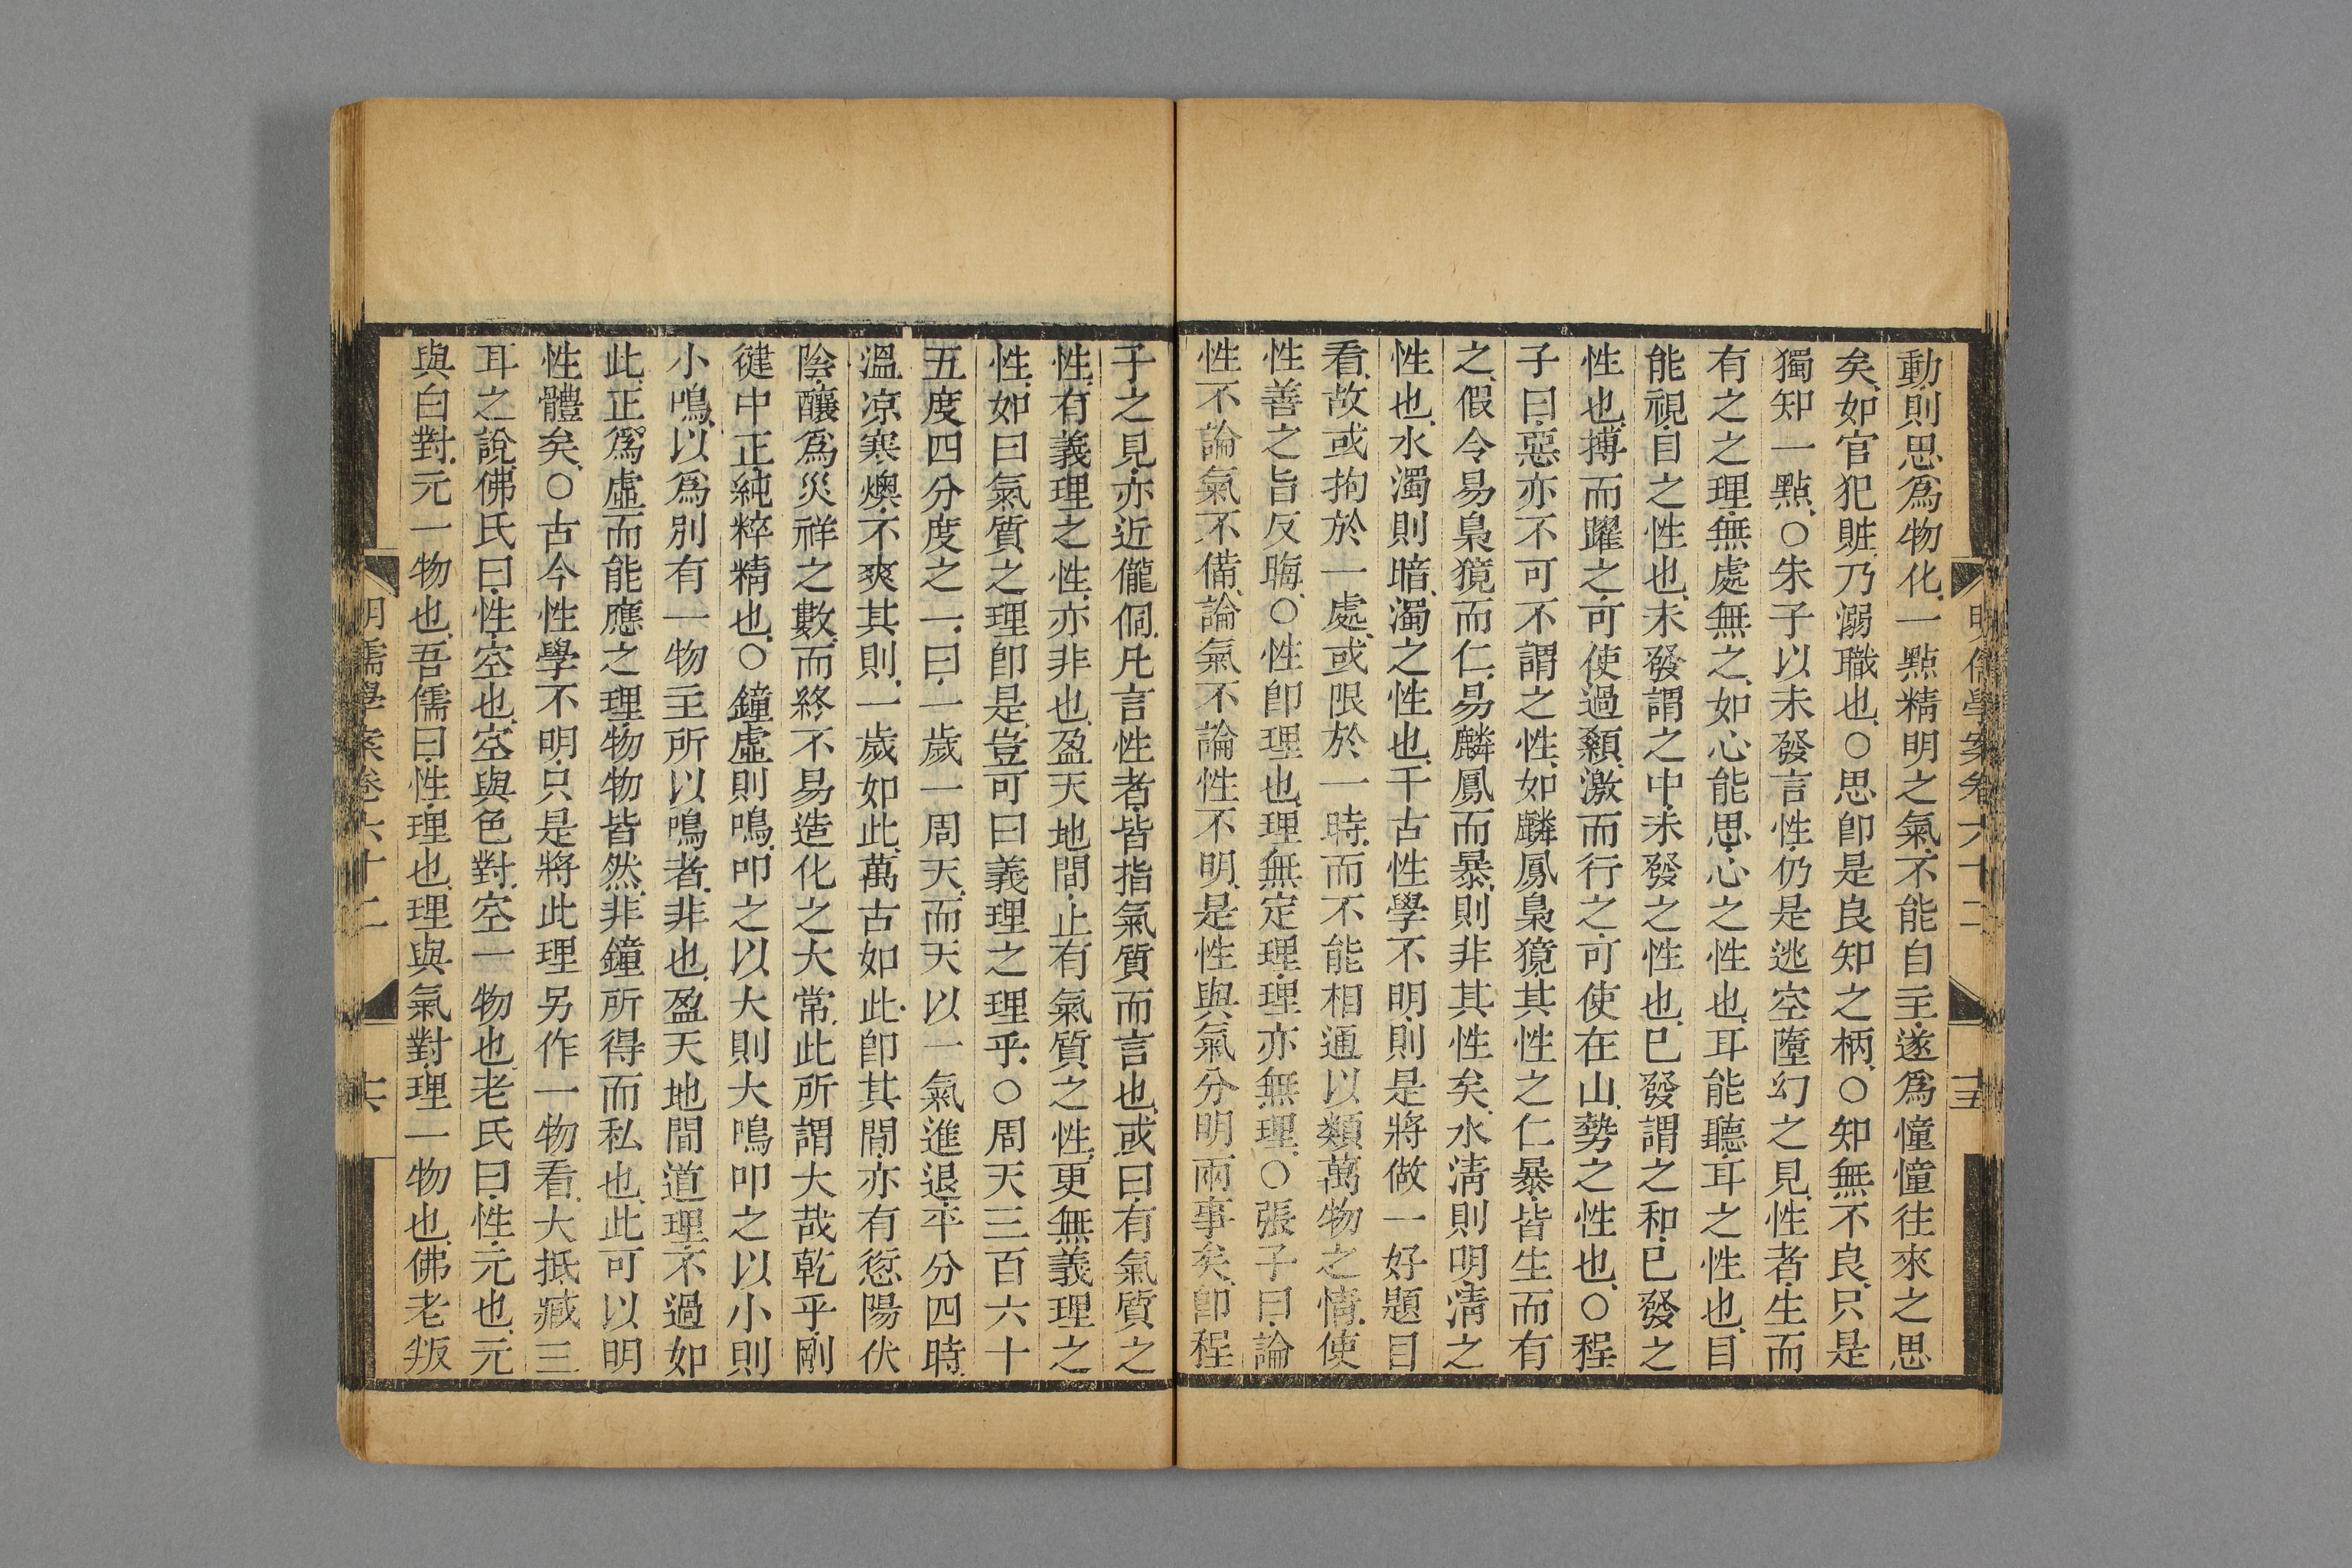 明儒學案卷六十二
十五
動則思爲物化一點精明之氣不能自主遂爲憧憧往來之思
矣如官犯贓乃溺職也○思卽是良知之柄○知無不良只是
獨知一點○朱子以未發言性仍是逃空墮幻之見性者生而
有之之理無處無之如心能思心之性也耳能聽耳之性也目
能視目之性也未發謂之中未發之性也已發謂之和已發之
性也搏而躍之可使過顙激而行之可使在山勢之性也○程
子曰惡亦不可不謂之性如麟鳳梟獍其性之仁暴皆生而有
之假令易梟獍而仁易麟鳳而暴則非其性矣水淸則明淸之
性也水濁則暗濁之性也千古性學不明則是將做一好題目
看故或拘於一處或限於一時而不能相通以類萬物之情使
性善之旨反晦○性卽理也理無定理理亦無理○張子曰論
性不論氣不備論氣不論性不明是性與氣分明兩事矣卽程
子之見亦近儱侗凡言性者皆指氣質而言也或曰有氣質之
性有義理之性亦非也盈天地間止有氣質之性更無義理之
性如曰氣質之理卽是豈可曰義理之理乎○周天三百六十
五度四分度之一曰一歲一周天而天以一氣進退平分四時
溫凉寒燠不爽其則一歲如此萬古如此卽其間亦有愆陽伏
陰釀爲災祥之數而終不易造化之大常此所謂大哉乾乎剛
健中正純粹精也○鐘虛則鳴叩之以大則大鳴叩之以小則
小鳴以爲別有一物主所以鳴者非也盈天地間道理不過如
此正爲虛而能應之理物物皆然非鐘所得而私也此可以明
性體矣○古今性學不明只是將此理另作一物看大抵臧三
耳之說佛氏曰性空也空與色對空一物也老氏曰性元也元
與白對元一物也吾儒曰性理也理與氣對理一物也佛老叛
明儒學案卷六十二
十六